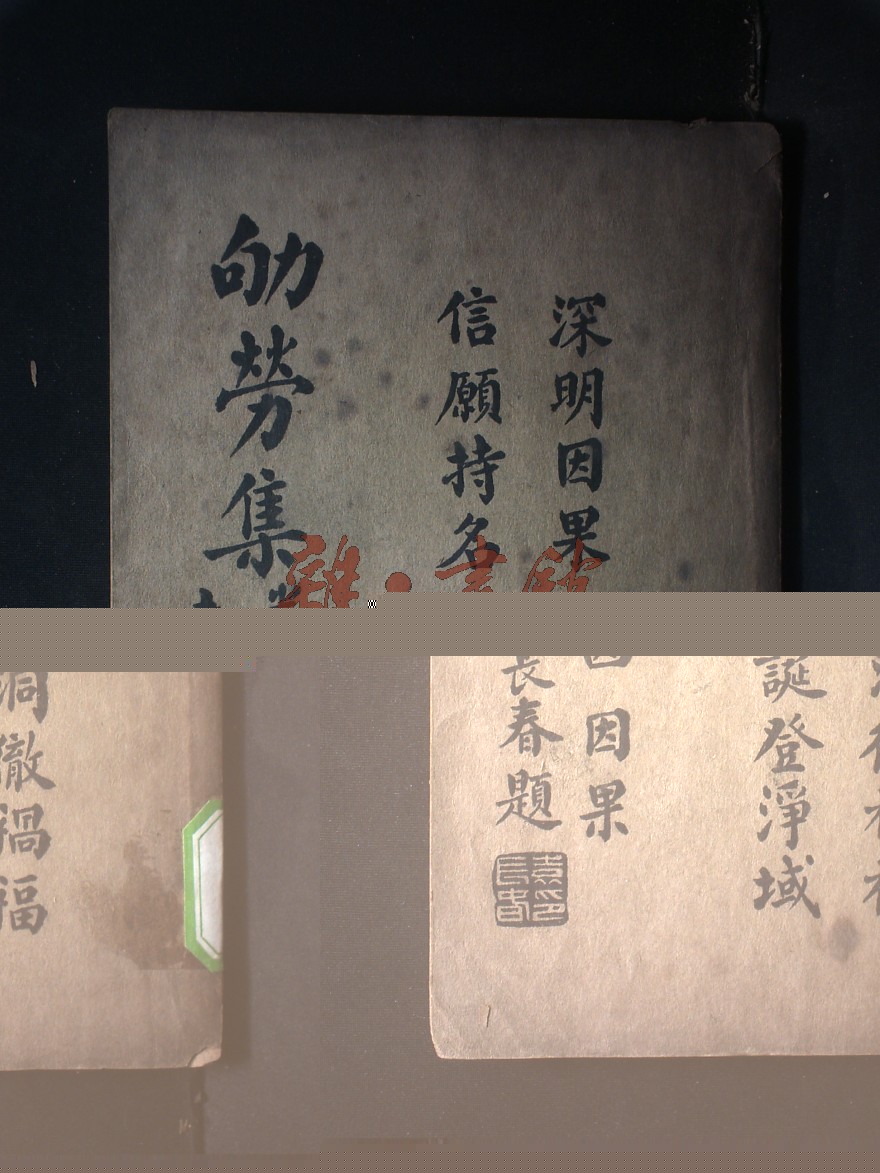 深明因果
信願持名
劬勞集
雜·書館
誕登淨域
因果
長春題
洞徹禍福